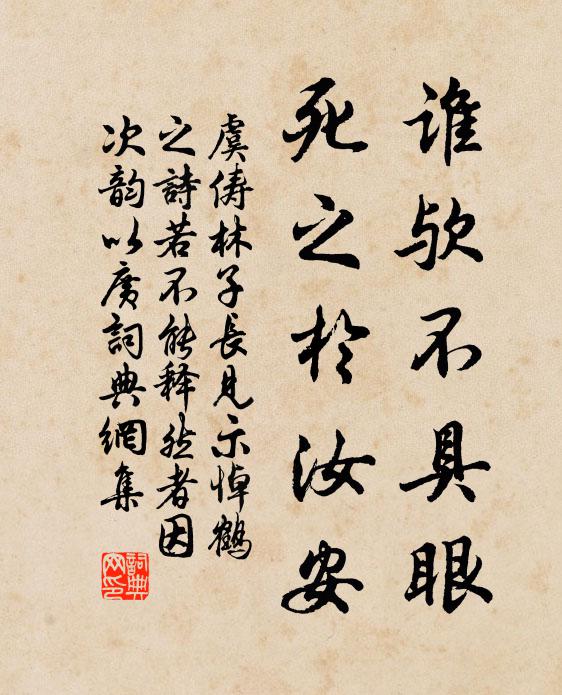 谁欤不具眼
死之於汝安
虞俦林子長見示悼鶴
之詩若不能释然者因
次韵以廣詞典網集
詞典网印